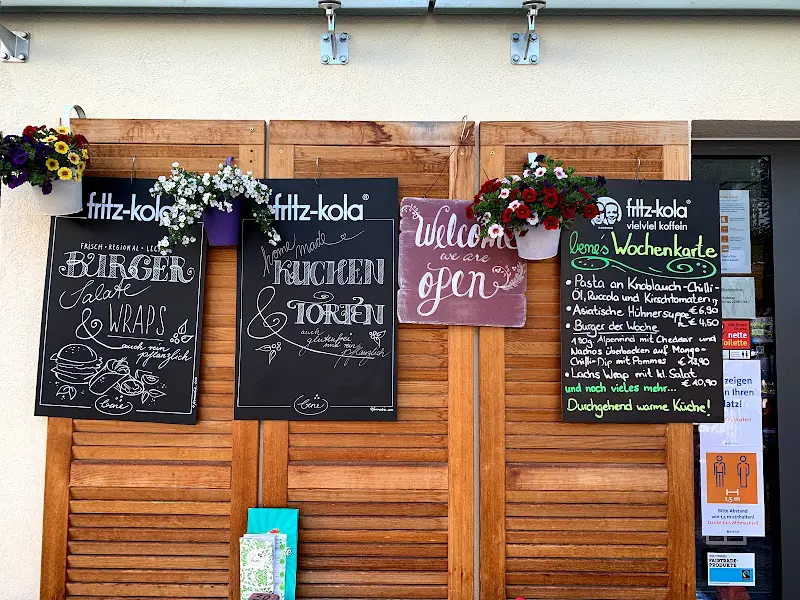 fritz-kola
FRISCH · REGIONAL
BURGER
Salate
& WRAPS
auch rein
pflanzlich
bene
fritz-kola®
home made
KUCHEN
& TORTEN
auch
glutenfrei
und rein
pflanzlich
bene
Welcome
we are
open
fritz-kola®
vielviel koffein
bene's Wochenkarte
• Pasta an Knoblauch-Chili-
Öl, Ruccola und Kirschtomaten
€ 6,90
• Asiatische Hühnersuppe
€ 4,50
• Burger des Woche
180g Alpenrind mit Cheddar und
Nachos überbacken auf Mango-
Chilli-Dip mit Pommes € 13,90
• Lachs Wrap mit kl. Salat
€ 10,90
und noch vieles mehr...
Durchgehend warme Küche!
nette
toilette
zeigen
en Ihren
latz!
1,5 m
Bitte Abstand
von 1,5 m einhalten!
Danke fürs Mitmachen!
FAIRTRADE-
PRODUKTE